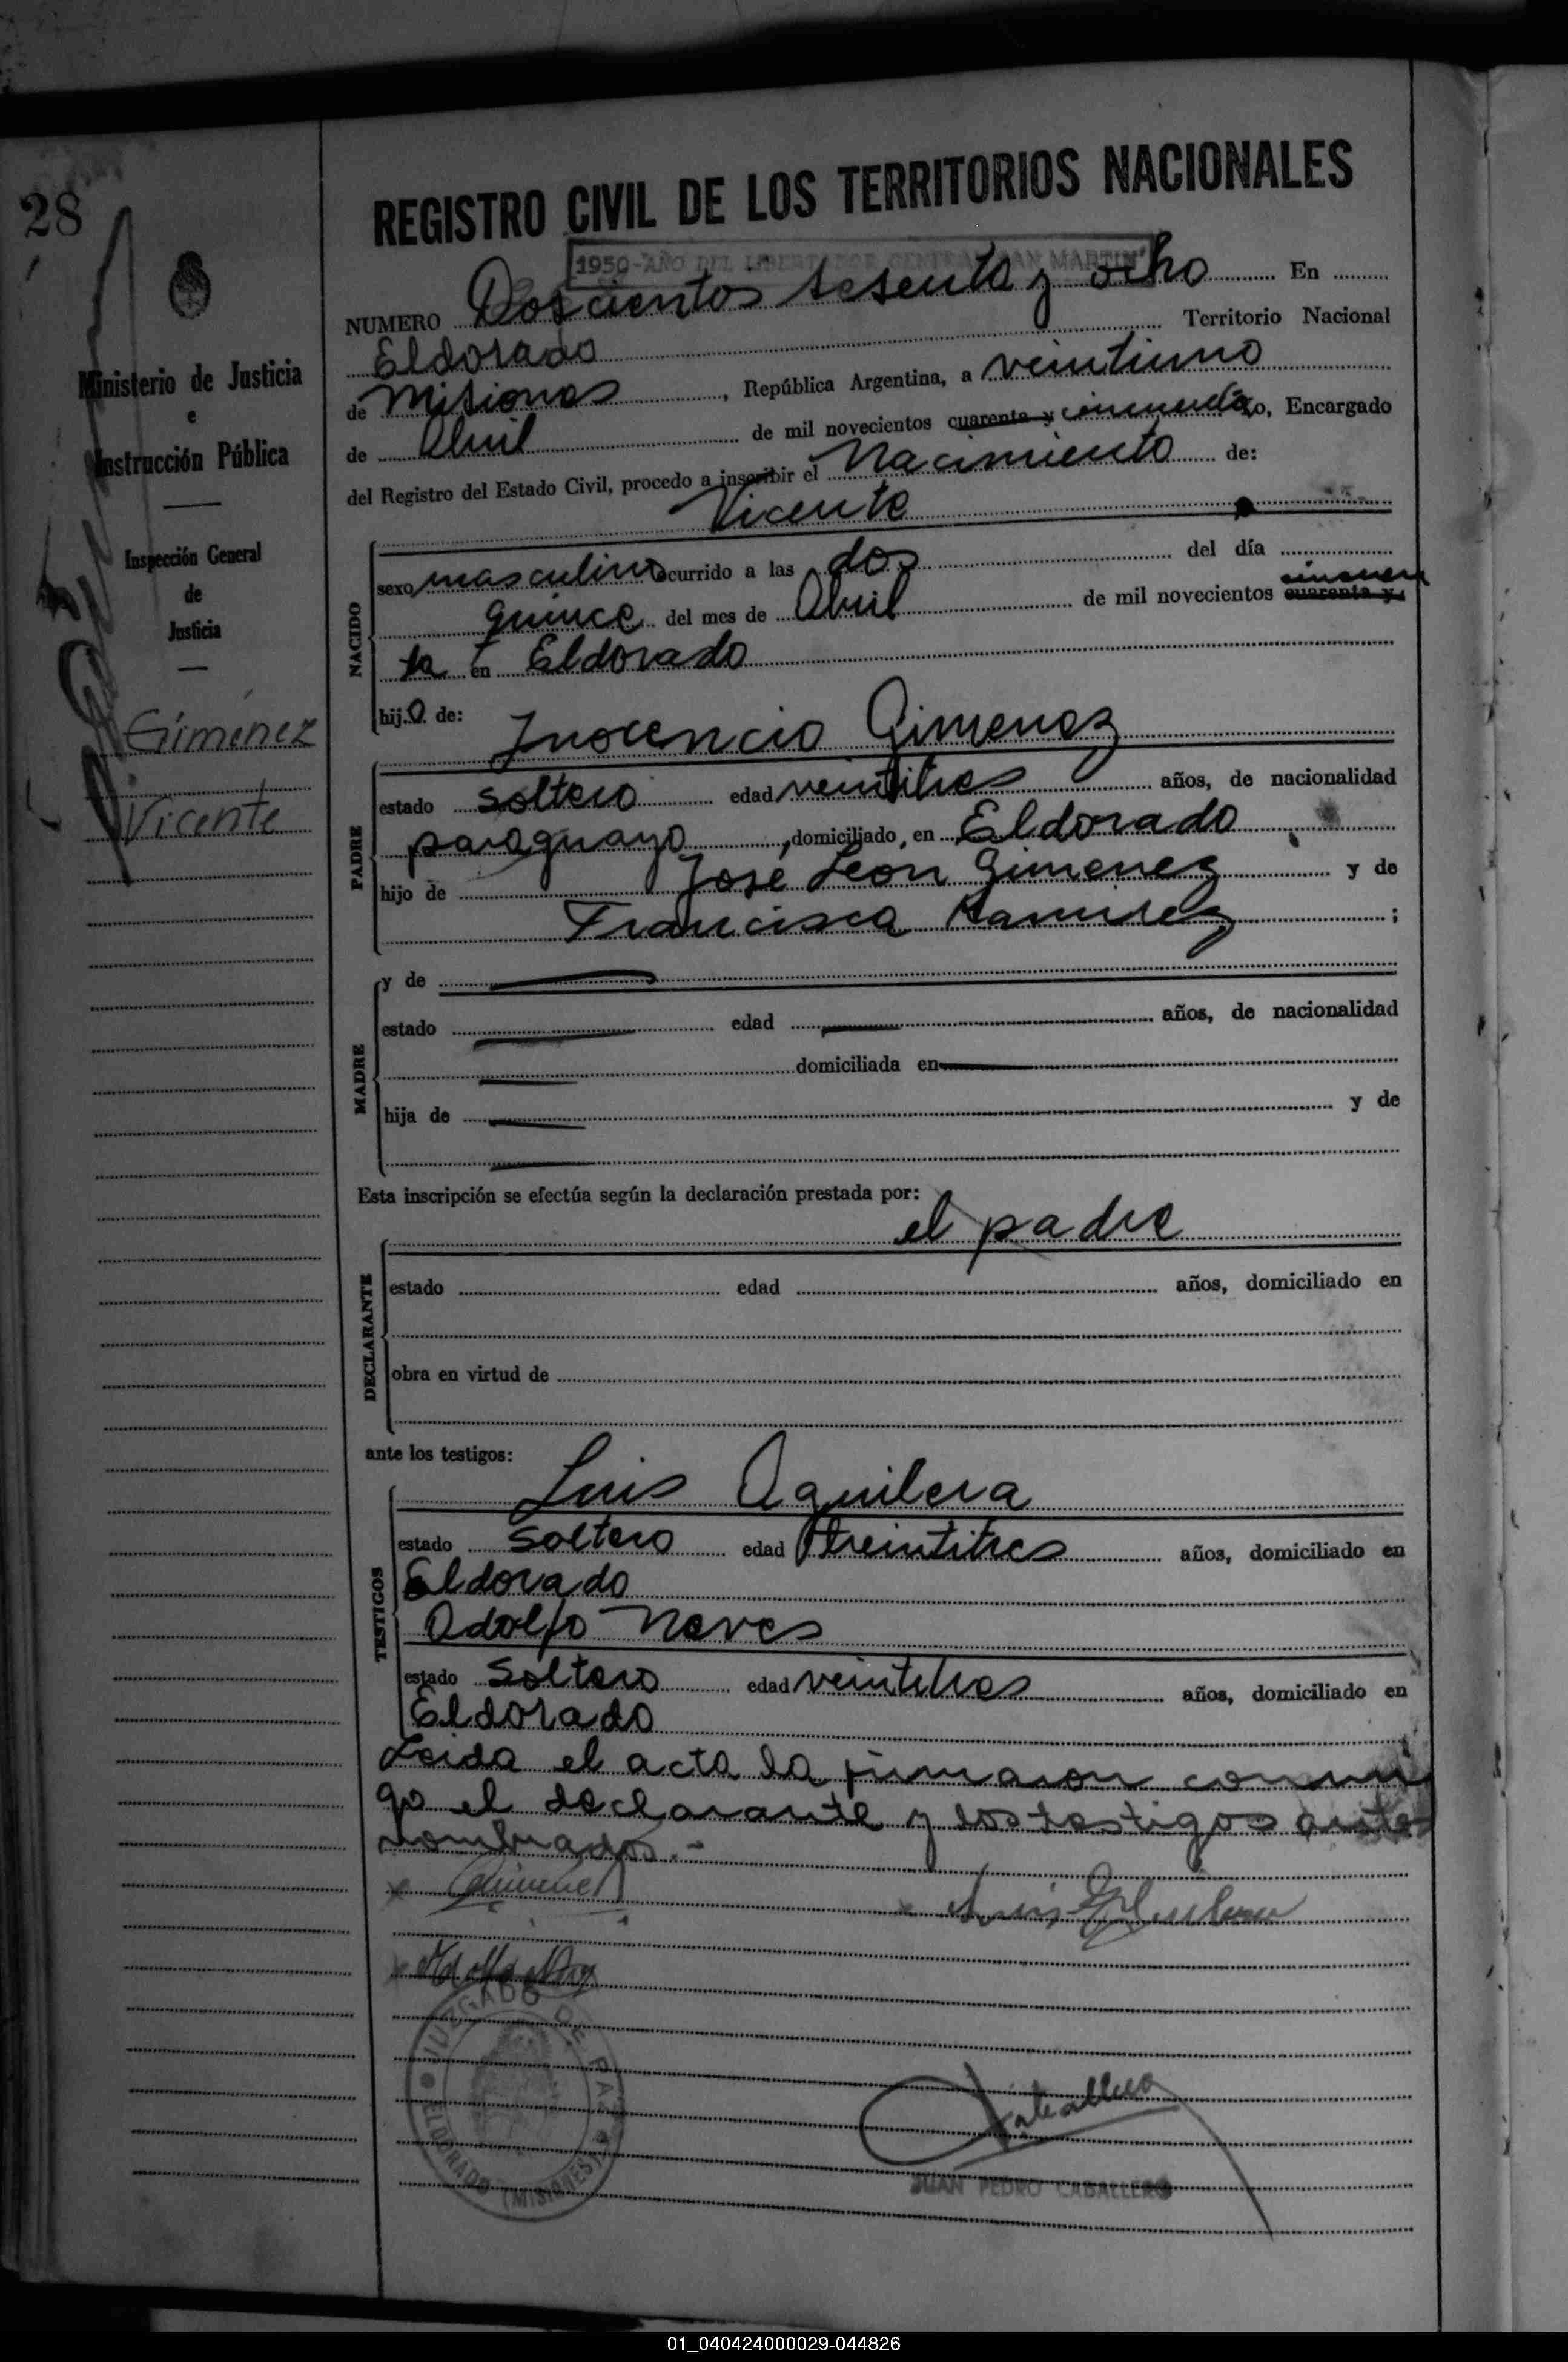 28
REGISTRO CIVIL DE LOS TERRITORIOS NACIONALES
1950-AÑO DEL LIBERTADOR GENERAL SAN MARTIN
NUMERO Doscientos sesenta y ocho En
Eldorado Territorio Nacional
de Misiones, República Argentina, a veintiuno
de Abril de mil novecientos cuarenta y cincuenta yo, Encargado
del Registro del Estado Civil, procedo a inscribir el Nacimiento de:
Vicente
NACIDO
sexo masculino ocurrido a las dos del día
quince del mes de Abril de mil novecientos cuarenta y cincuen
ta en Eldorado
hijo de:
Inocencio Gimenez
PADRE
estado soltero edad veintitres años, de nacionalidad
paraguayo, domiciliado en Eldorado
hijo de José Leon Gimenez y de
Francisca Ramirez;
MADRE
y de
estado edad años, de nacionalidad
domiciliada en
hija de y de
Esta inscripción se efectúa según la declaración prestada por:
el padre
DECLARANTE
estado edad años, domiciliado en
obra en virtud de
ante los testigos:
Luis Aguilera
TESTIGOS
estado soltero edad treintitres años, domiciliado en
Eldorado
Adolfo Neves
estado soltero edad veintitres años, domiciliado en
Eldorado
Leida el acta la firmaron conmi
go el declarante y los testigos ante
nombrados.-
x Gimenez
x Luis Aguilera
JUZGADO DE PAZ
ELDORADO (MISIONES)
Caballero
JUAN PEDRO CABALLERO
Ministerio de Justicia
e
Instrucción Pública
Inspección General
de
Justicia
Giménez
Vicente
01_040424000029-044826